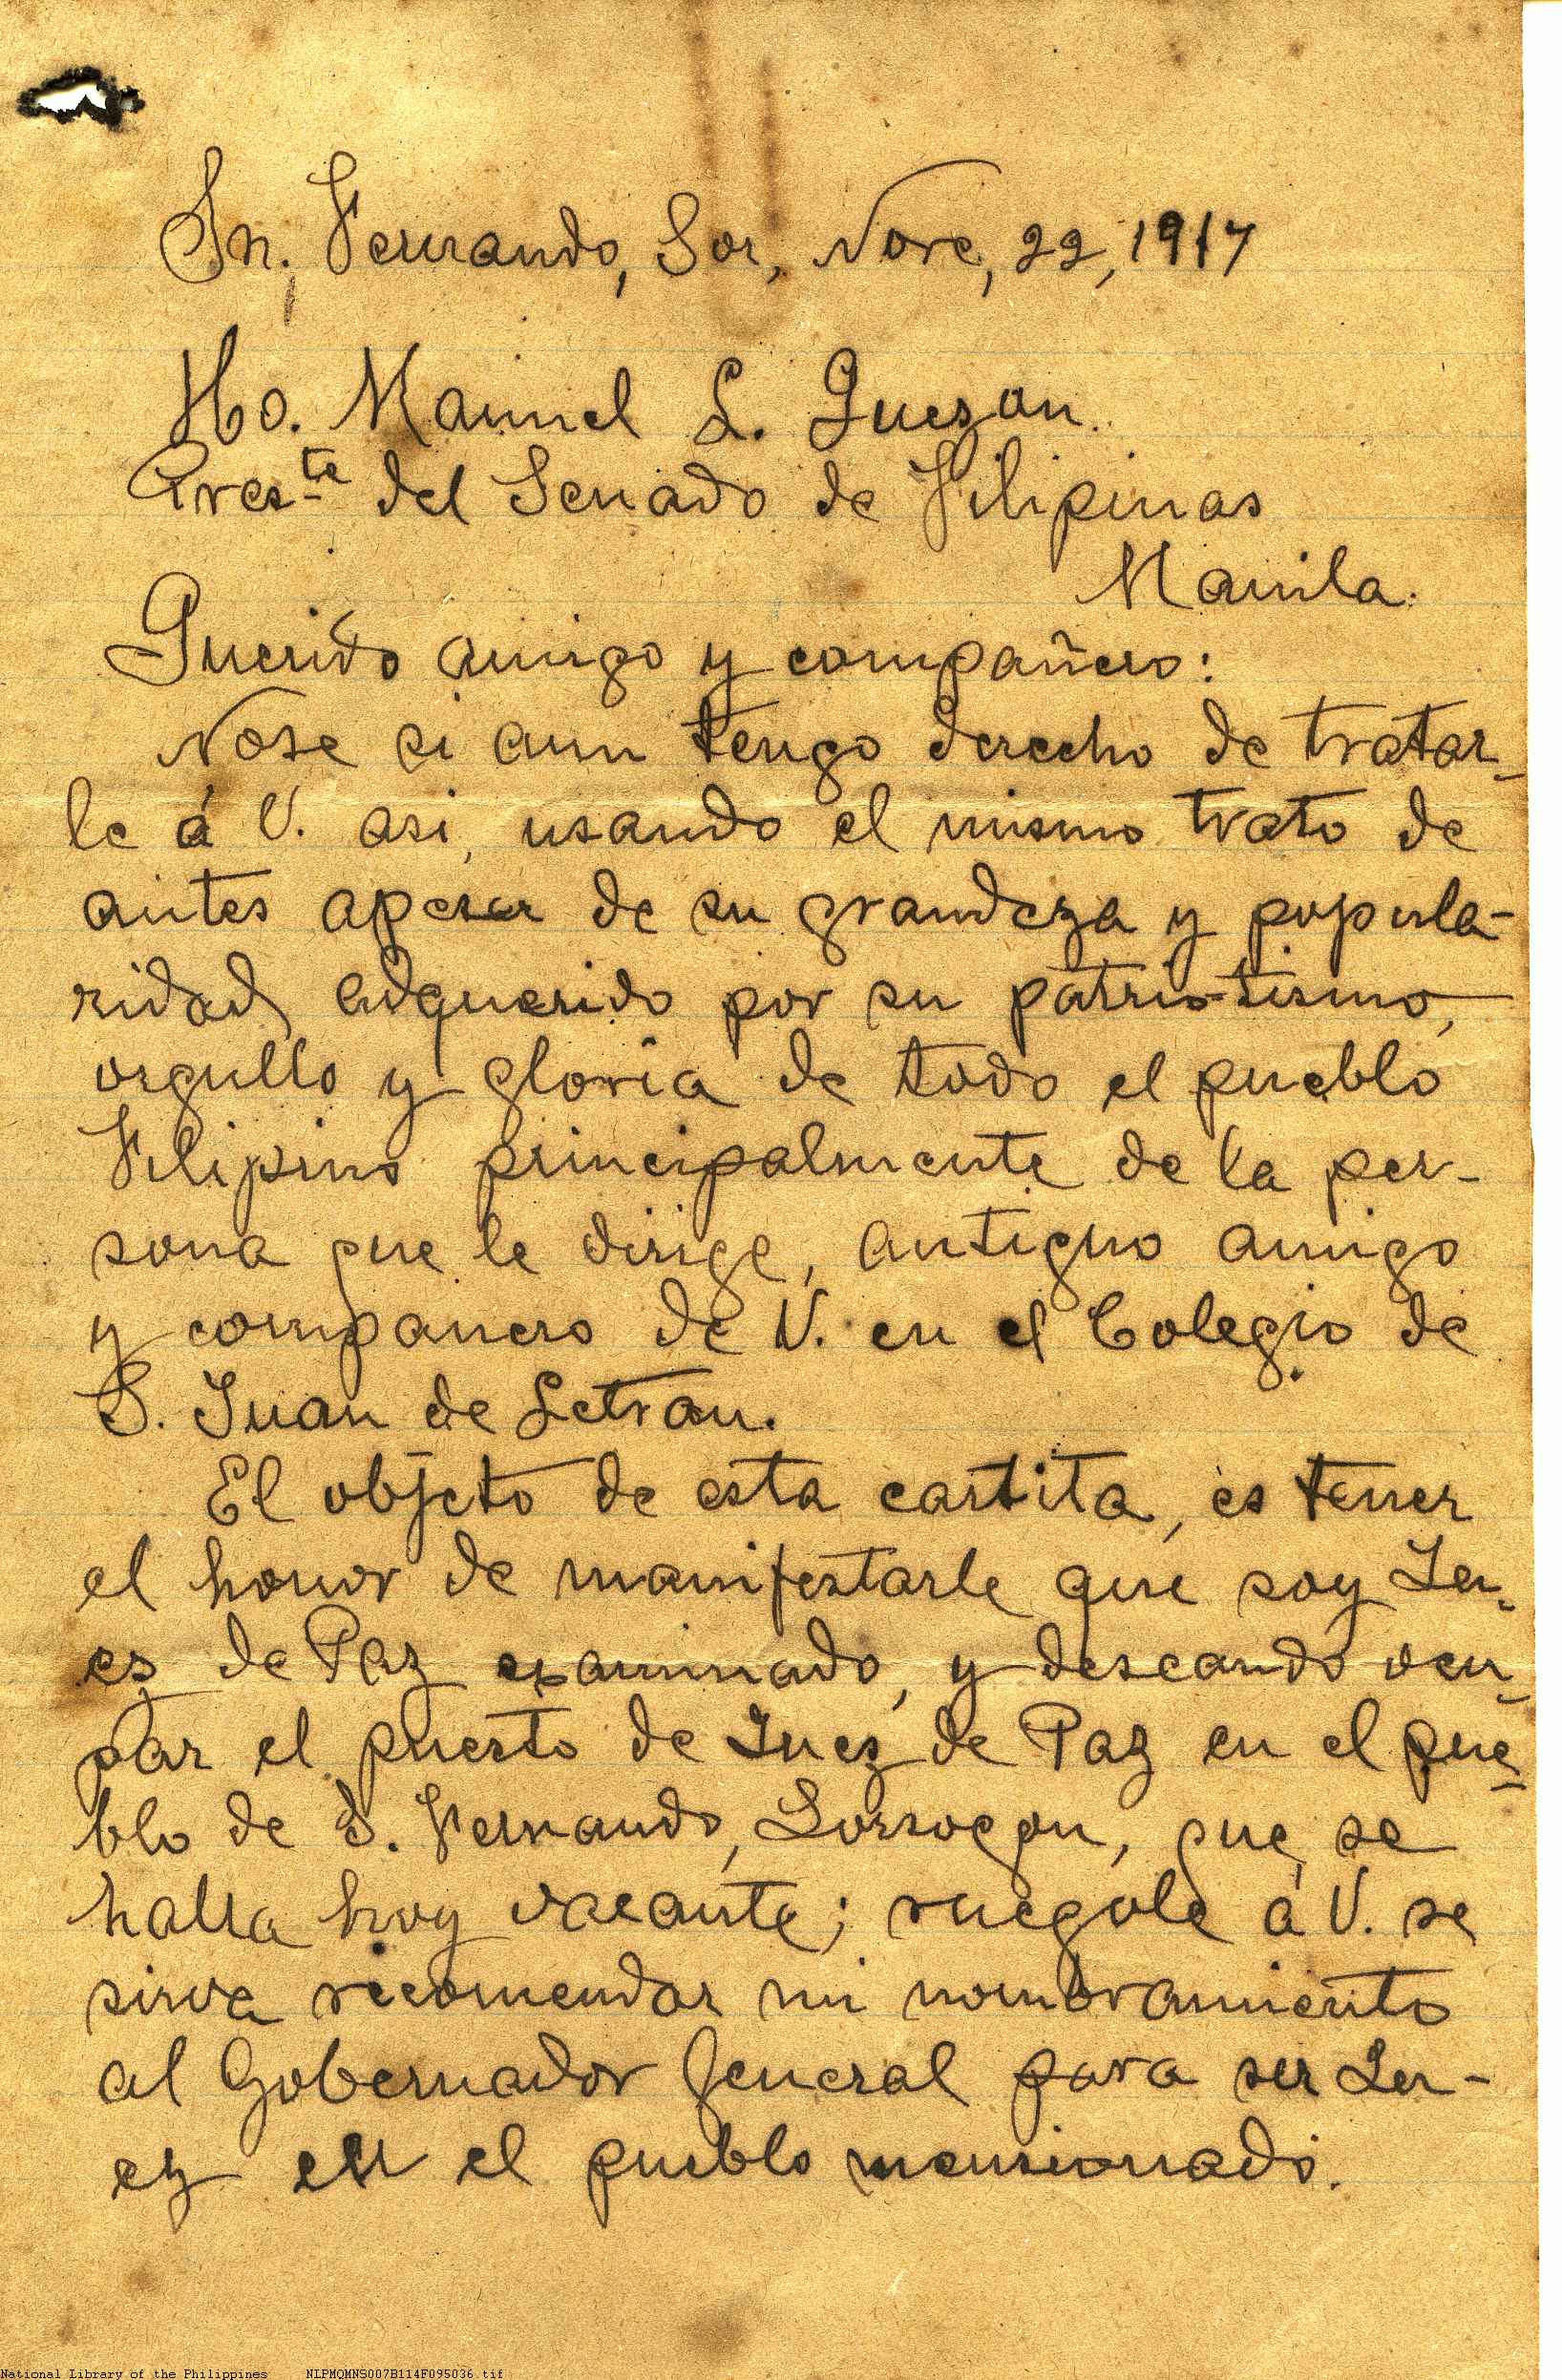 Sn. Fernando, Sor, Nove, 22, 1917
Ho. Manuel L. Quezon.
Pres.te del Senado de Filipinas
Manila.
Querido amigo y compañero:
Nose si aun tengo derecho de tratar-
le á V. asi, usando el mismo trato de
antes apesar de su grandeza y popula-
ridad adquerido por su patriotismo,
orgullo y gloria de todo el pueblo
Filipino principalmente de la per-
sona que le dirige, antiguo amigo
y companero de V. en el Colegio de
S. Juan de Letran.
El objeto de esta cartita, es tener
el honor de manifestarle que soy Ju-
ez de Paz examinado, y deseando ocu-
par el puesto de Juez de Paz en el pue-
blo de S. Fernando, Sorsogon, que se
halla hoy vacante; ruegole á V. se
sirva recomendar mi nombramiento
al Gobernador General para ser Ju-
ez en el pueblo mensionado.
National Library of the Philippines NLPMQMNS007B114F095036.tif